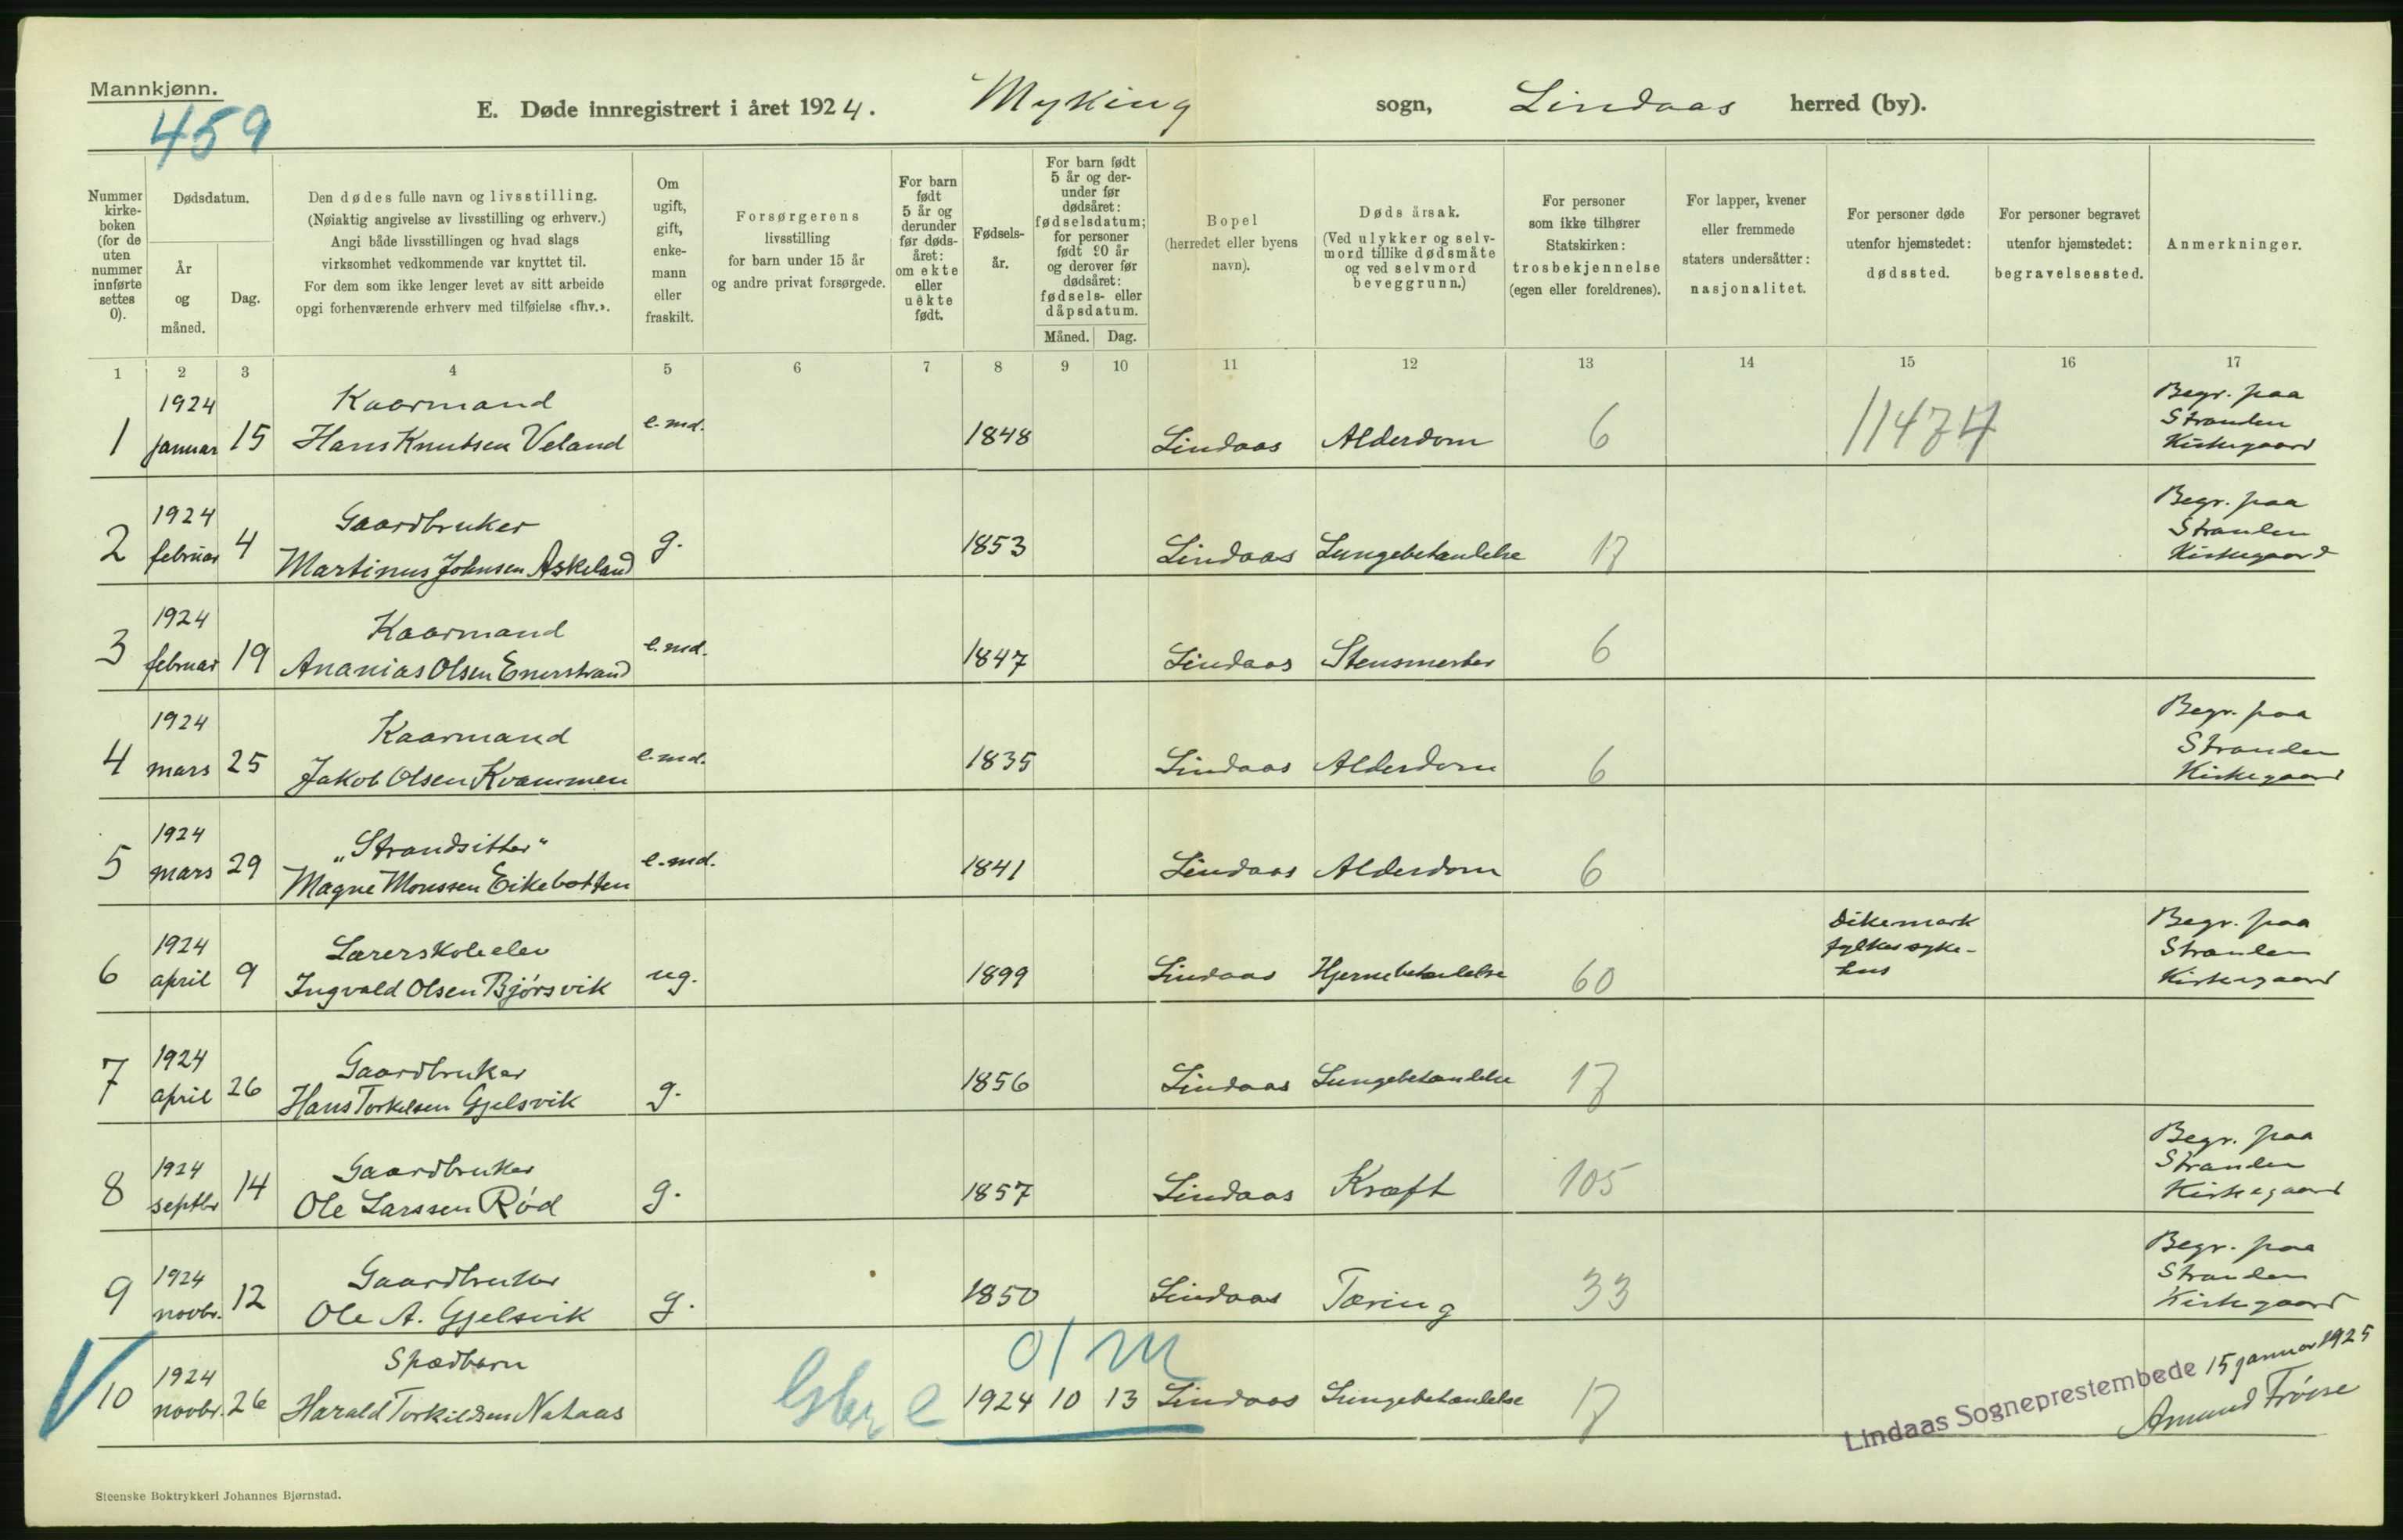 Mannkjønn.
459
E. Døde innregistrert i året 1924. Myking sogn, Lindaas herred (by).
Nummer kirke-boken (for de uten nummer innførte settes 0).
Dødsdatum.
År og måned.
Dag.
Den dødes fulle navn og livsstilling.
(Nøiaktig angivelse av livsstilling og erhverv.)
Angi både livsstillingen og hvad slags
virksomhet vedkommende var knyttet til.
For dem som ikke lenger levet av sitt arbeide
opgi forhenværende erhverv med tilføielse «fhv.».
Om ugift, gift, enke-mann eller fraskilt.
Forsørgerens livsstilling for barn under 15 år og andre privat forsørgede.
For barn født 5 år og derunder før døds-året: om ekte eller uekte født.
Fødsels-år.
For barn født 5 år og der-under før dødsåret: fødselsdatum; for personer født 90 år og derover før dødsåret: fødsels- eller dåpsdatum.
Måned. Dag.
Bopel (herredet eller byens navn).
Døds årsak.
(Ved ulykker og selv-mord tillike dødsmåte og ved selvmord beveggrunn.)
For personer som ikke tilhører Statskirken: trosbekjennelse (egen eller foreldrenes).
For lapper, kvener eller fremmede staters undersåtter: nasjonalitet.
For personer døde utenfor hjemstedet: dødssted.
For personer begravet utenfor hjemstedet: begravelsessted.
Anmerkninger.
1 2 3 4 5 6 7 8 9 10 11 12 13 14 15 16 17
1924 Kaarmand Begr. paa Stranden Kirkegaard
1 januar 15 Hans Knutsen Veland e.md. 1848 Lindaas Alderdom 6 11474
1924 Gaardbruker Begr. paa Stranden Kirkegaard
2 februar 4 Martinus Johnsen Askeland g. 1853 Lindaas Lungebetændelse 17
1924 Kaarmand
3 februar 19 Ananias Olsen Enerstrand e.md. 1847 Lindaas Stensmerter 6
1924 Kaarmand Begr. paa Stranden Kirkegaard
4 mars 25 Jakob Olsen Kvammen e.md. 1835 Lindaas Alderdom 6
1924 „Strandsitter"
5 mars 29 Magne Monssen Eikebotten e.md. 1841 Lindaas Alderdom 6
1924 Lærerskoleelev Dikemark fylkessyke-hus Begr. paa Stranden Kirkegaard
6 april 9 Ingvald Olsen Bjørsvik ug. 1899 Lindaas Hjernebetændelse 60
1924 Gaardbruker
7 april 26 Hans Torkelsen Gjelsvik g. 1856 Lindaas Lungebetændelse 17
1924 Gaardbruker Begr. paa Stranden Kirkegaard
8 septbr 14 Ole Larssen Rød g. 1857 Lindaas Kræft 105
1924 Gaardbruker Begr. paa Stranden Kirkegaard
9 novbr. 12 Ole A. Gjelsvik g. 1850 Lindaas Tæring 33
1924 Spædbarn 01 m
10 novbr. 26 Harald Torkildsen Nataas Gbr e 1924 10 13 Lindaas Lungebetændelse 17
Lindaas Sogneprestembede 15 januar 1925
Amund Frøise
Steenske Boktrykkeri Johannes Bjørnstad.